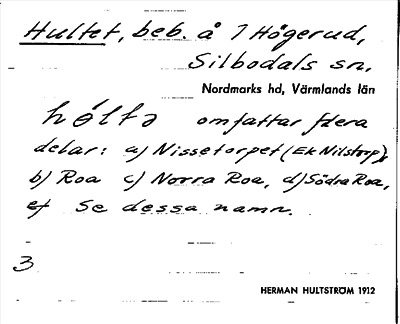 Hultet, beb. å 1 Högerud,
Silbodals sn,
Nordmarks hd, Värmlands län
hóltə omfattar flera
delar: a) Nissetorpet (Ek Nilstorp),
b) Roa c) Norra Roa, d) Södra Roa,
e) Se dessa namn.
3
HERMAN HULTSTRÖM 1912